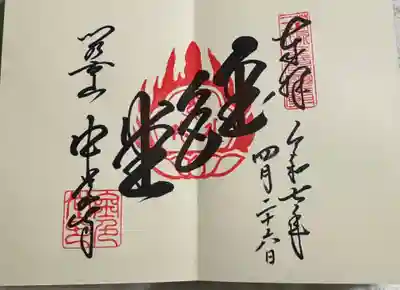 奉拝
令和七年
四月二十六日
金色堂
関山
中尊寺